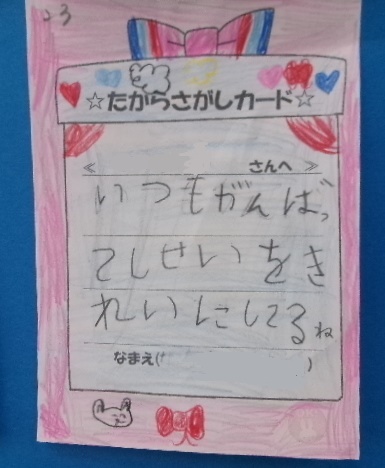 23
☆たからさがしカード☆
≪ さんへ ≫
いつもがんばっ
てしせいをき
れいにしてるね
なまえ( )